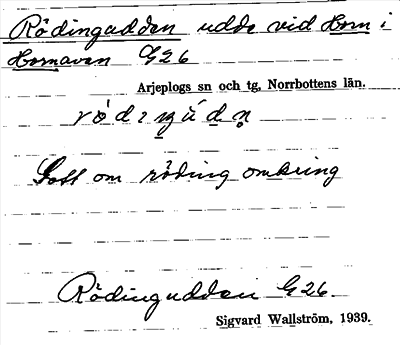 Rödingudden udde vid Horn i
Hornavan G26
Arjeplogs sn och tg, Norrbottens län.
Gott om röding omkring
Rödingudden G26
Sigvard Wallström, 1939.